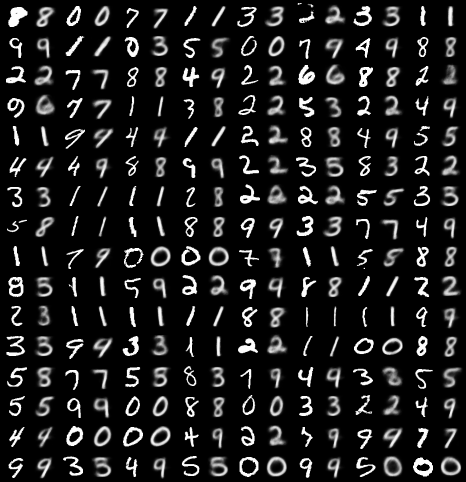 8 8 0 0 7 7 1 1 3 3 2 3 3 1 1
9 9 1 1 0 3 5 5 0 0 7 9 4 9 8 8
2 2 7 7 8 8 4 9 2 2 6 6 8 8 2 2
6 7 7 1 1 3 8 2 2 5 3 2 2 4 9
1 1 9 9 4 4 1 1 2 2 8 8 4 9 5 5
4 4 4 9 8 8 9 9 2 2 3 5 8 3 2 2
3 3 1 1 1 1 2 8 2 2 2 2 5 5 3 3
5 8 1 1 1 1 8 8 9 9 3 3 7 7 4 9
1 1 7 9 0 0 0 0 7 7 1 1 5 5 8 8
8 5 1 1 5 9 2 2 9 4 8 8 1 1 2 2
2 3 1 1 1 1 1 1 8 8 1 1 1 1 9 9
3 3 9 4 3 3 1 1 2 2 1 1 0 0 8 8
5 8 7 7 5 5 8 3 7 9 4 9 3 8 5 5
5 5 9 9 0 0 8 8 0 0 3 3 2 2 4 9
4 4 0 0 0 0 4 9 2 2 7 9 9 9 7 7
9 9 3 5 4 9 5 5 0 0 9 9 5 0 0 0